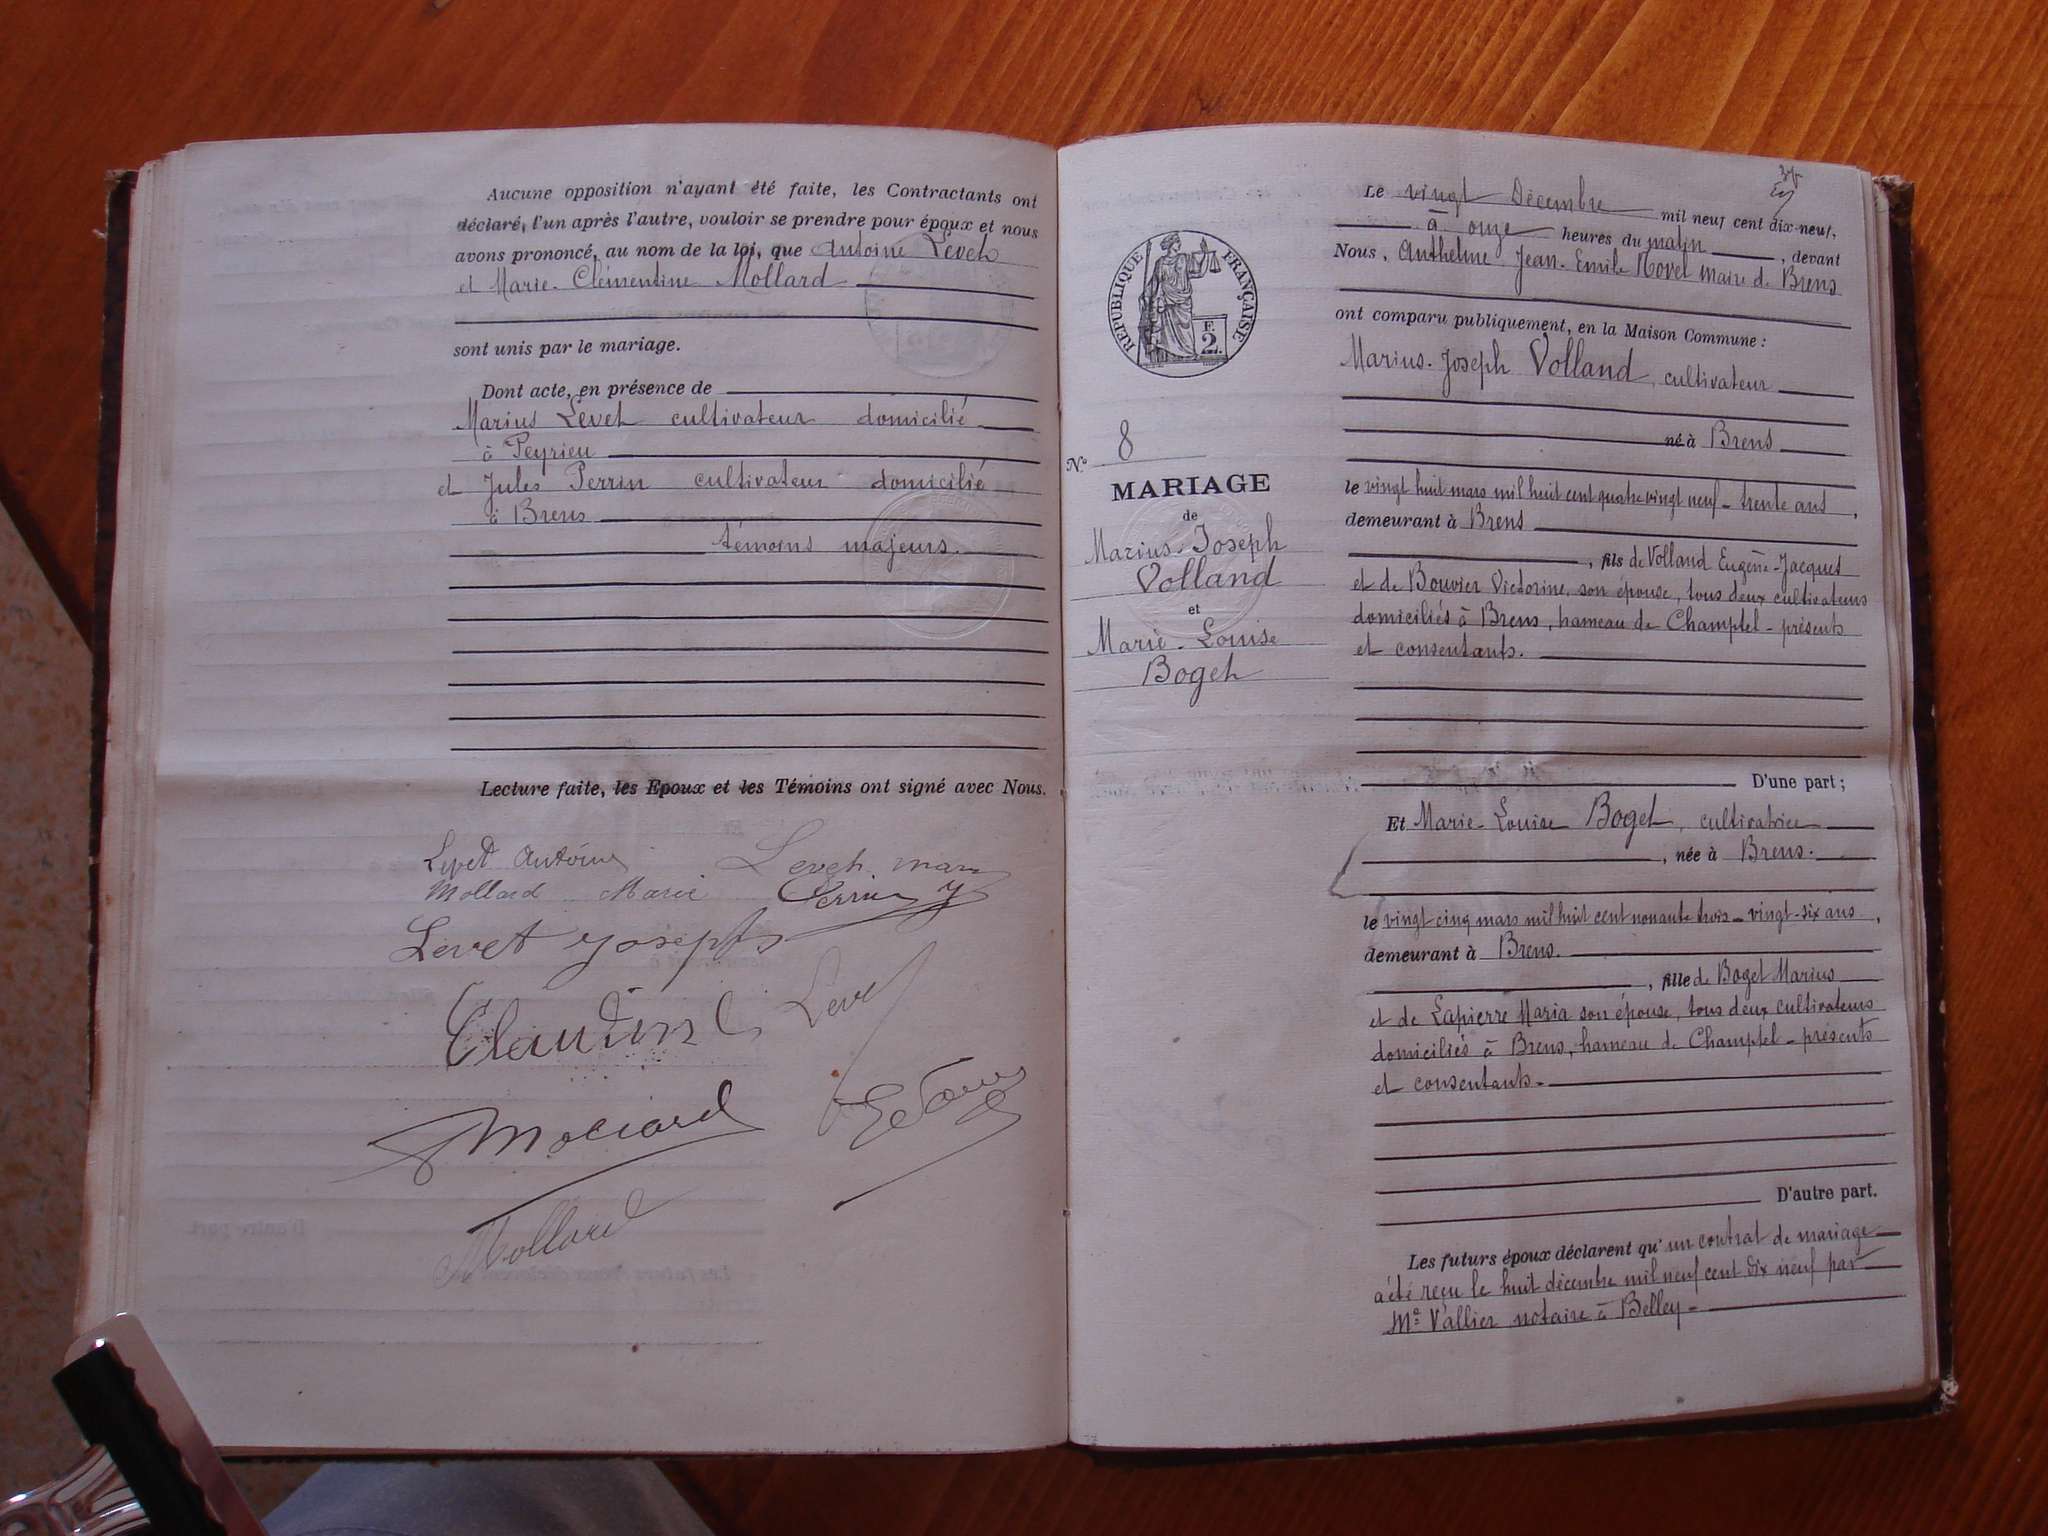 Aucune opposition n'ayant été faite, les Contractants ont
déclaré, l'un après l'autre, vouloir se prendre pour époux et nous
avons prononcé, au nom de la loi, que Antoine Levet
et Marie-Clémentine Mollard
sont unis par le mariage.
Dont acte, en présence de
Marius Levet cultivateur domicilié
à Peyrieu
et Jules Perrin cultivateur domicilié
à Brens
témoins majeurs.
Lecture faite, les Epoux et les Témoins ont signé avec Nous.
Levet Antoine
Levet
Mollard Marie
Perrin J
Levet Joseph
Claudine Levet
Mollard
Mollard
Le vingt Décembre mil neuf cent dix-neuf,
à onze heures du matin, devant
Nous, Anthelme Jean-Emile Morel Maire de Brens
ont comparu publiquement, en la Maison Commune :
Marius-Joseph Volland, cultivateur
né à Brens
le vingt huit mars mil huit cent quatre vingt neuf - trente ans,
demeurant à Brens
, fils de Volland Eugène-Jacques
et de Bouvier Victorine, son épouse, tous deux cultivateurs
domiciliés à Brens, hameau de Champtel - présents
et consentants.
D'une part ;
Et Marie-Louise Boget, cultivatrice
, née à Brens.
le vingt cinq mars mil huit cent nonante trois - vingt-six ans,
demeurant à Brens.
, fille de Boget Marius
et de Lapierre Maria son épouse, tous deux cultivateurs
domiciliés à Brens, hameau de Champtel - présents
et consentants.
D'autre part.
Les futurs époux déclarent qu'un contrat de mariage
a été reçu le huit décembre mil neuf cent dix neuf par
Me Vallier notaire à Belley -
RÉPUBLIQUE FRANÇAISE
F.
2.
N° 8
MARIAGE
de
Marius-Joseph
Volland
et
Marie-Louise
Boget